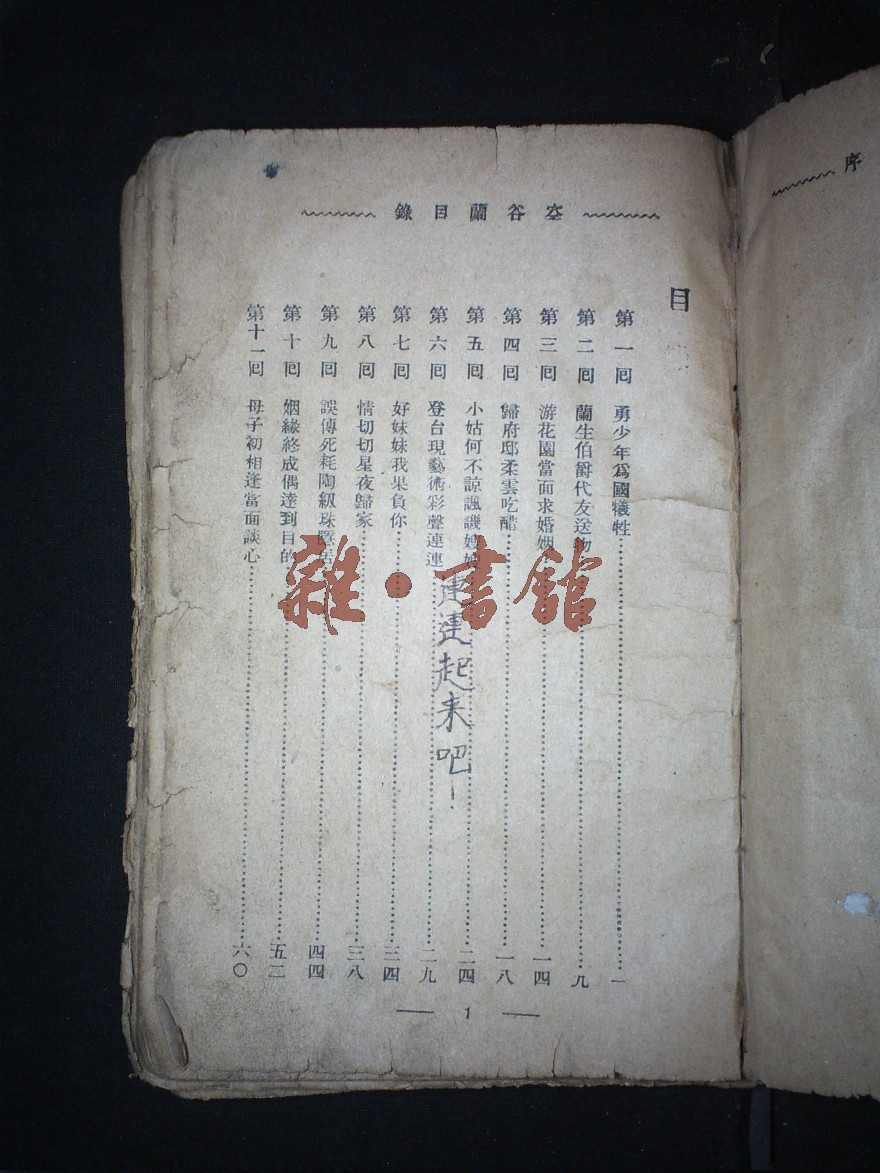 序
空谷蘭目錄
目
第一囘 勇少年爲國犧牲 一
第二囘 蘭生伯爵代友送物 九
第三囘 游花園當面求婚姻 一四
第四囘 歸府邸柔雲吃醋 一八
第五囘 小姑何不諒諷譏嫂嫂 二四
第六囘 登台現藝術彩聲連連 二九
第七囘 好妹妹我果負你 三四
第八囘 情切切星夜歸家 三八
第九囘 誤傳死耗陶紉珠 四四
第十囘 姻緣終成偶達到目的 五二
第十一囘 母子初相逢當面談心 六〇
起来吧！
1
雜·書館